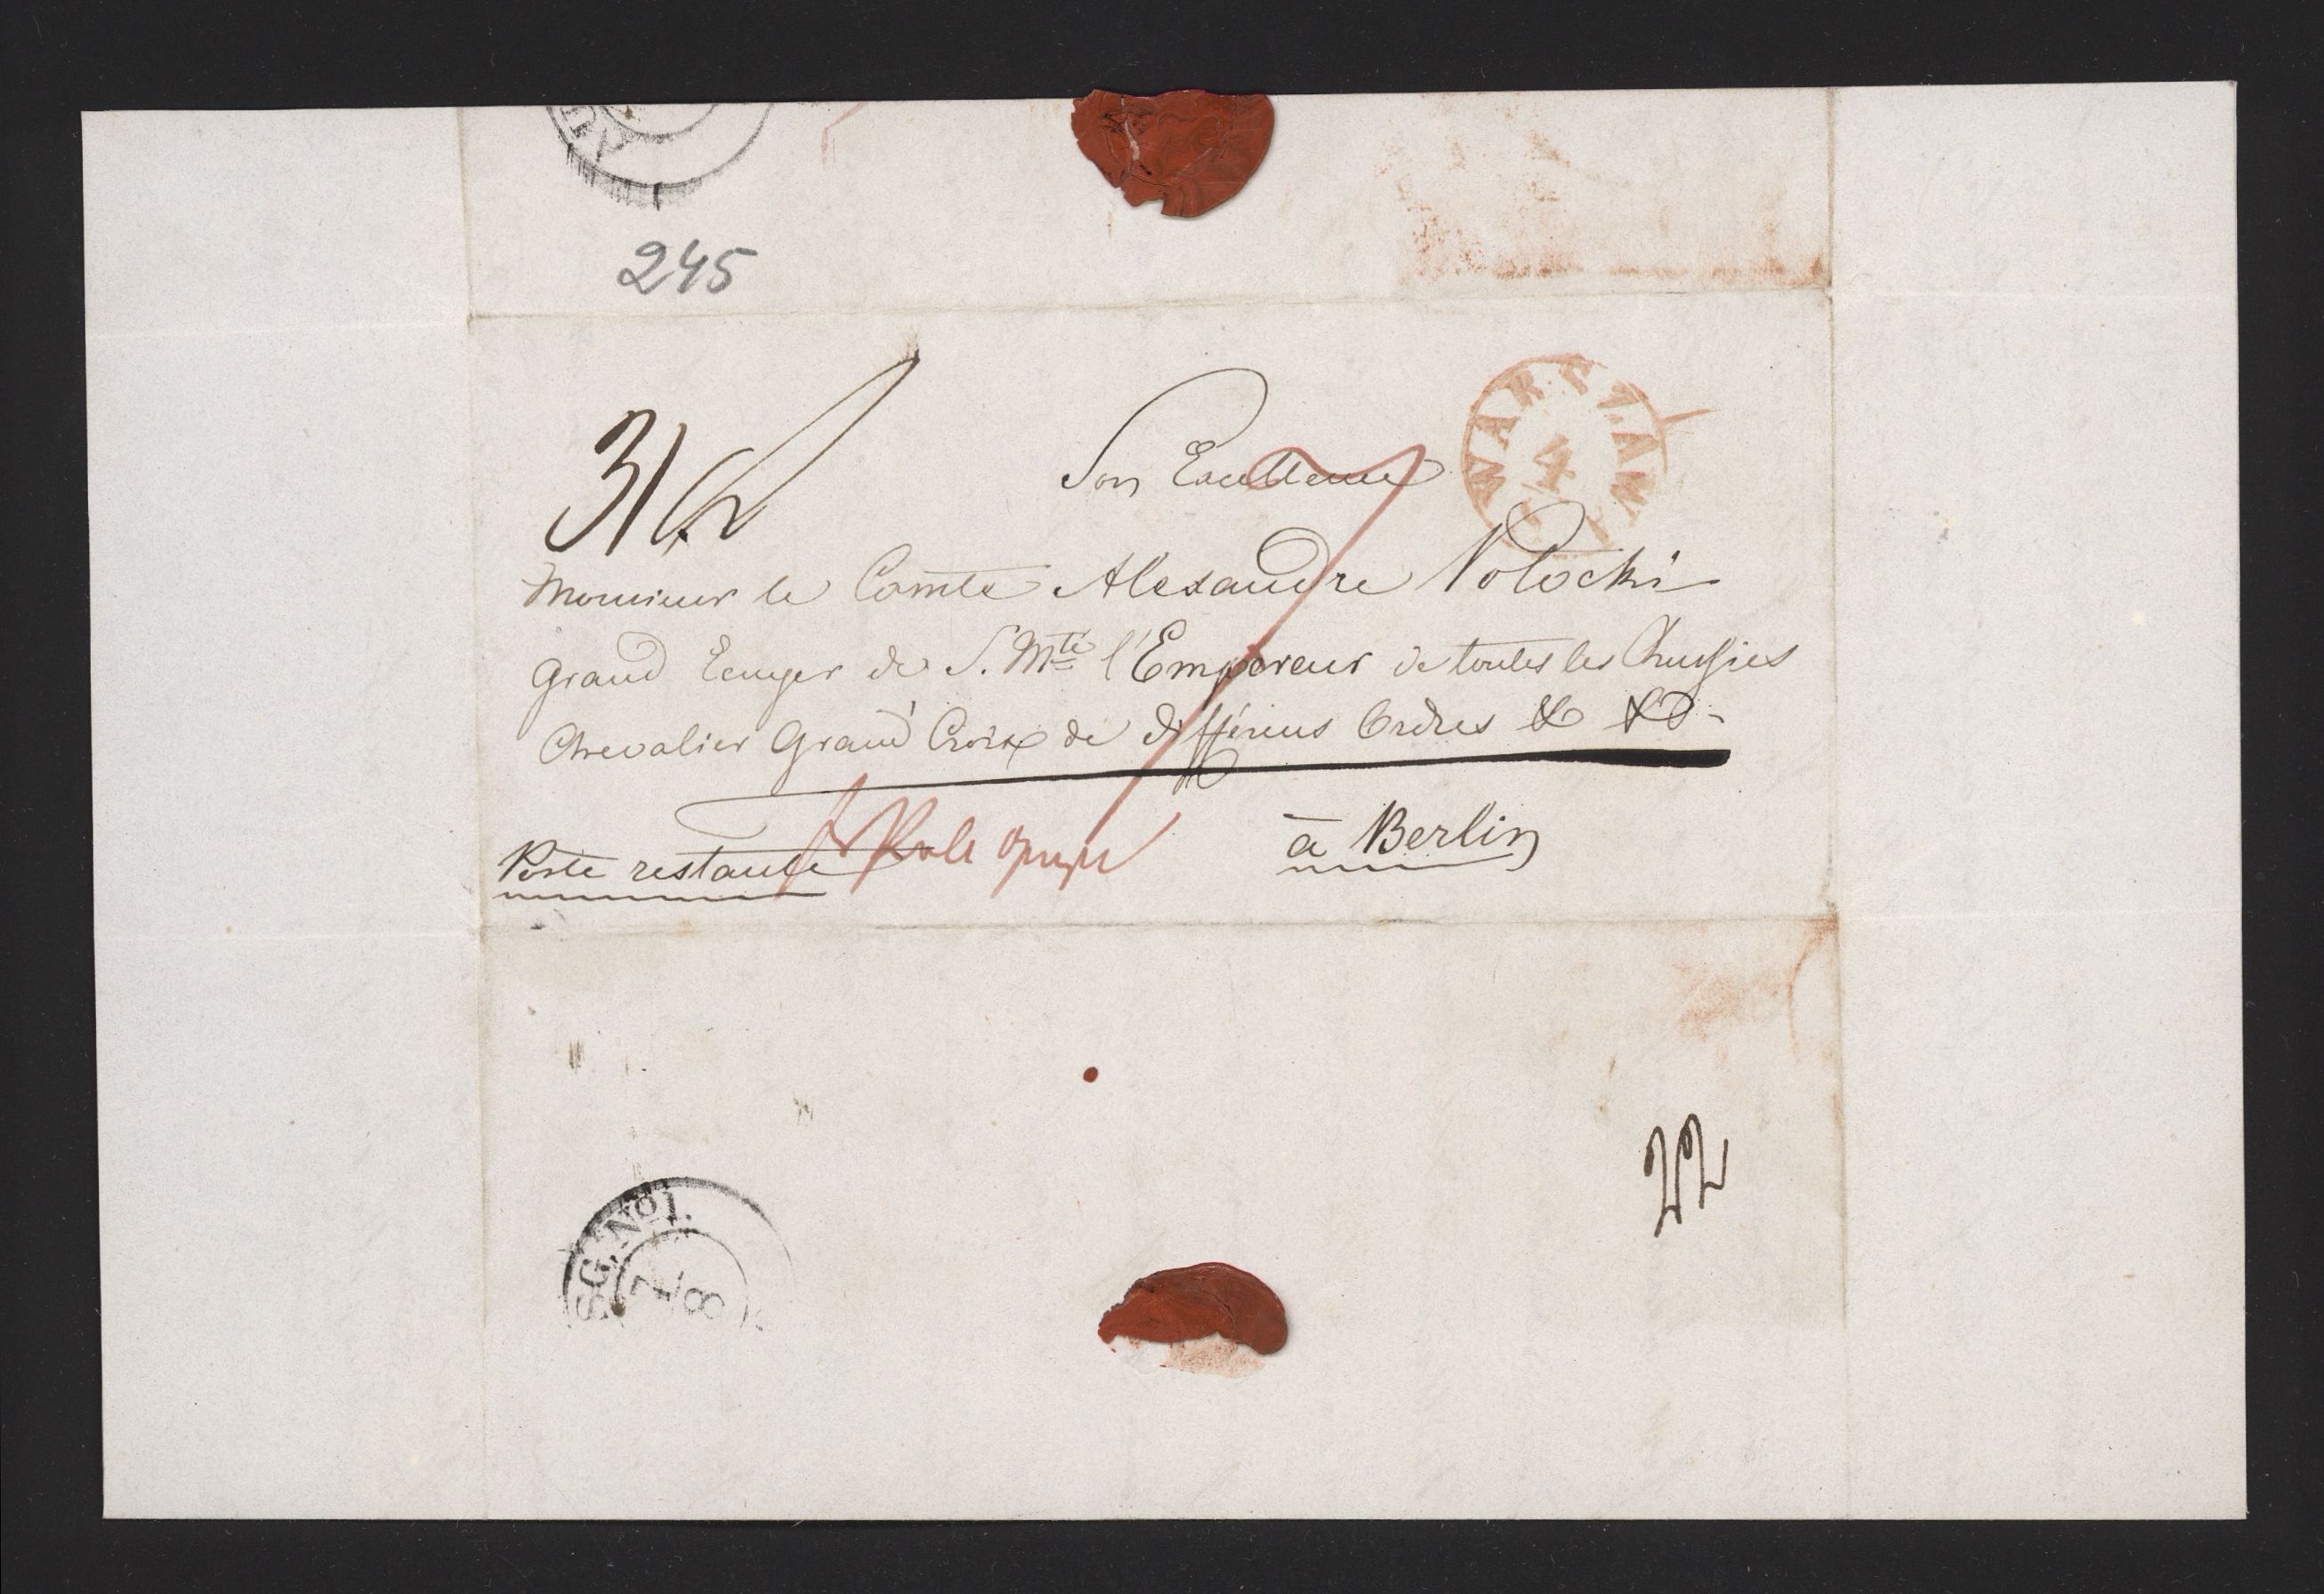 245
Son Excellence
WARSZAWA
4
Monsieur le Comte Alexandre Potocki
Grand Ecuyer de S. Mté l'Empereur de toutes les Russies
Chevalier Grand Croix de différens Ordres & &
à Berlin
Poste restante
22
No 1.